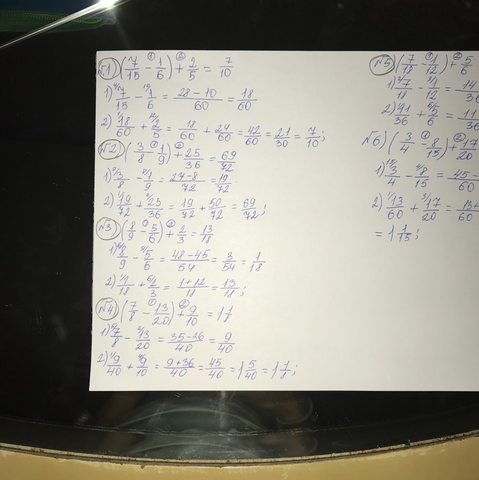 №1) (7/15 - 1/6) + 2/5 = 7/10
1) 7/15 - 1/6 = 28-10/60 = 18/60
2) 18/60 + 2/5 = 18/60 + 24/60 = 42/60 = 21/30 = 7/10;
№2) (3/8 - 1/9) + 25/36 = 69/72
1) 3/8 - 1/9 = 27-8/72 = 19/72
2) 19/72 + 25/36 = 19/72 + 50/72 = 69/72;
№3) (8/9 - 5/6) + 2/3 = 13/18
8/9 - 5/6 = 48-45/54 = 3/54 = 1/18
2) 1/18 + 2/3 = 1+12/18 = 13/18;
№4) (7/8 - 13/20) + 9/10 = 1 1/8
1) 7/8 - 13/20 = 35-26/40 = 9/40
2) 9/40 + 9/10 = 9+36/40 = 45/40 = 1 5/40 = 1 1/8;
№5) (7/18 - 1/12) + 5/6
1) 7/18 - 1/12 = 14/36
2) 11/36 + 5/6 = 11/36
№6) (3/4 - 8/15) + 17/20
1) 3/4 - 8/15 = 45-/60
2) 13/60 + 17/20 = 13+/60
= 1 1/15;